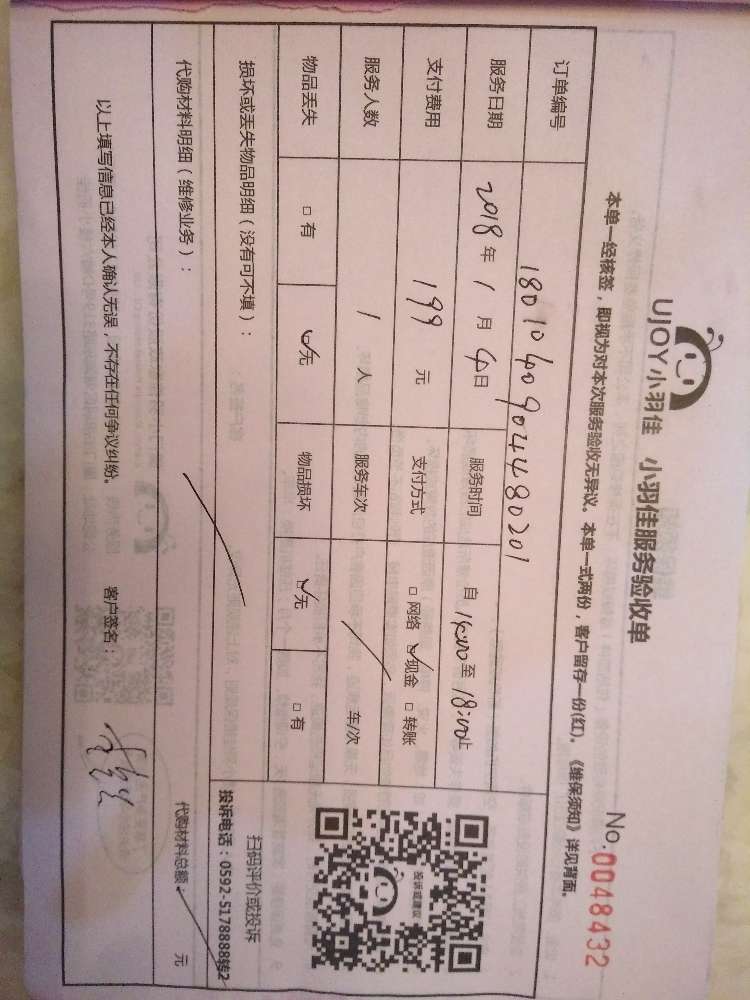 UJOY小羽佳 小羽佳服务验收单
No.0048432
本单一经核签，即视为对本次服务验收无异议。本单一式两份，客户留存一份(红)。《维保须知》详见背面。
订单编号 18010409044480201
服务日期 2018年1月4日 服务时间 自14:00至18:00止
支付费用 199元 支付方式 □网络 ☑现金 □转账
服务人数 1人 服务车次 / 车/次
物品丢失 □有 ☑无 物品损坏 ☑无 □有
损坏或丢失物品明细（没有可不填）：
投诉或建议
扫码评价或投诉
投诉电话：0592-5178888转2
代购材料明细（维修业务）：
代购材料总额： 元
以上填写信息已经本人确认无误，不存在任何争议纠纷。 客户签名：